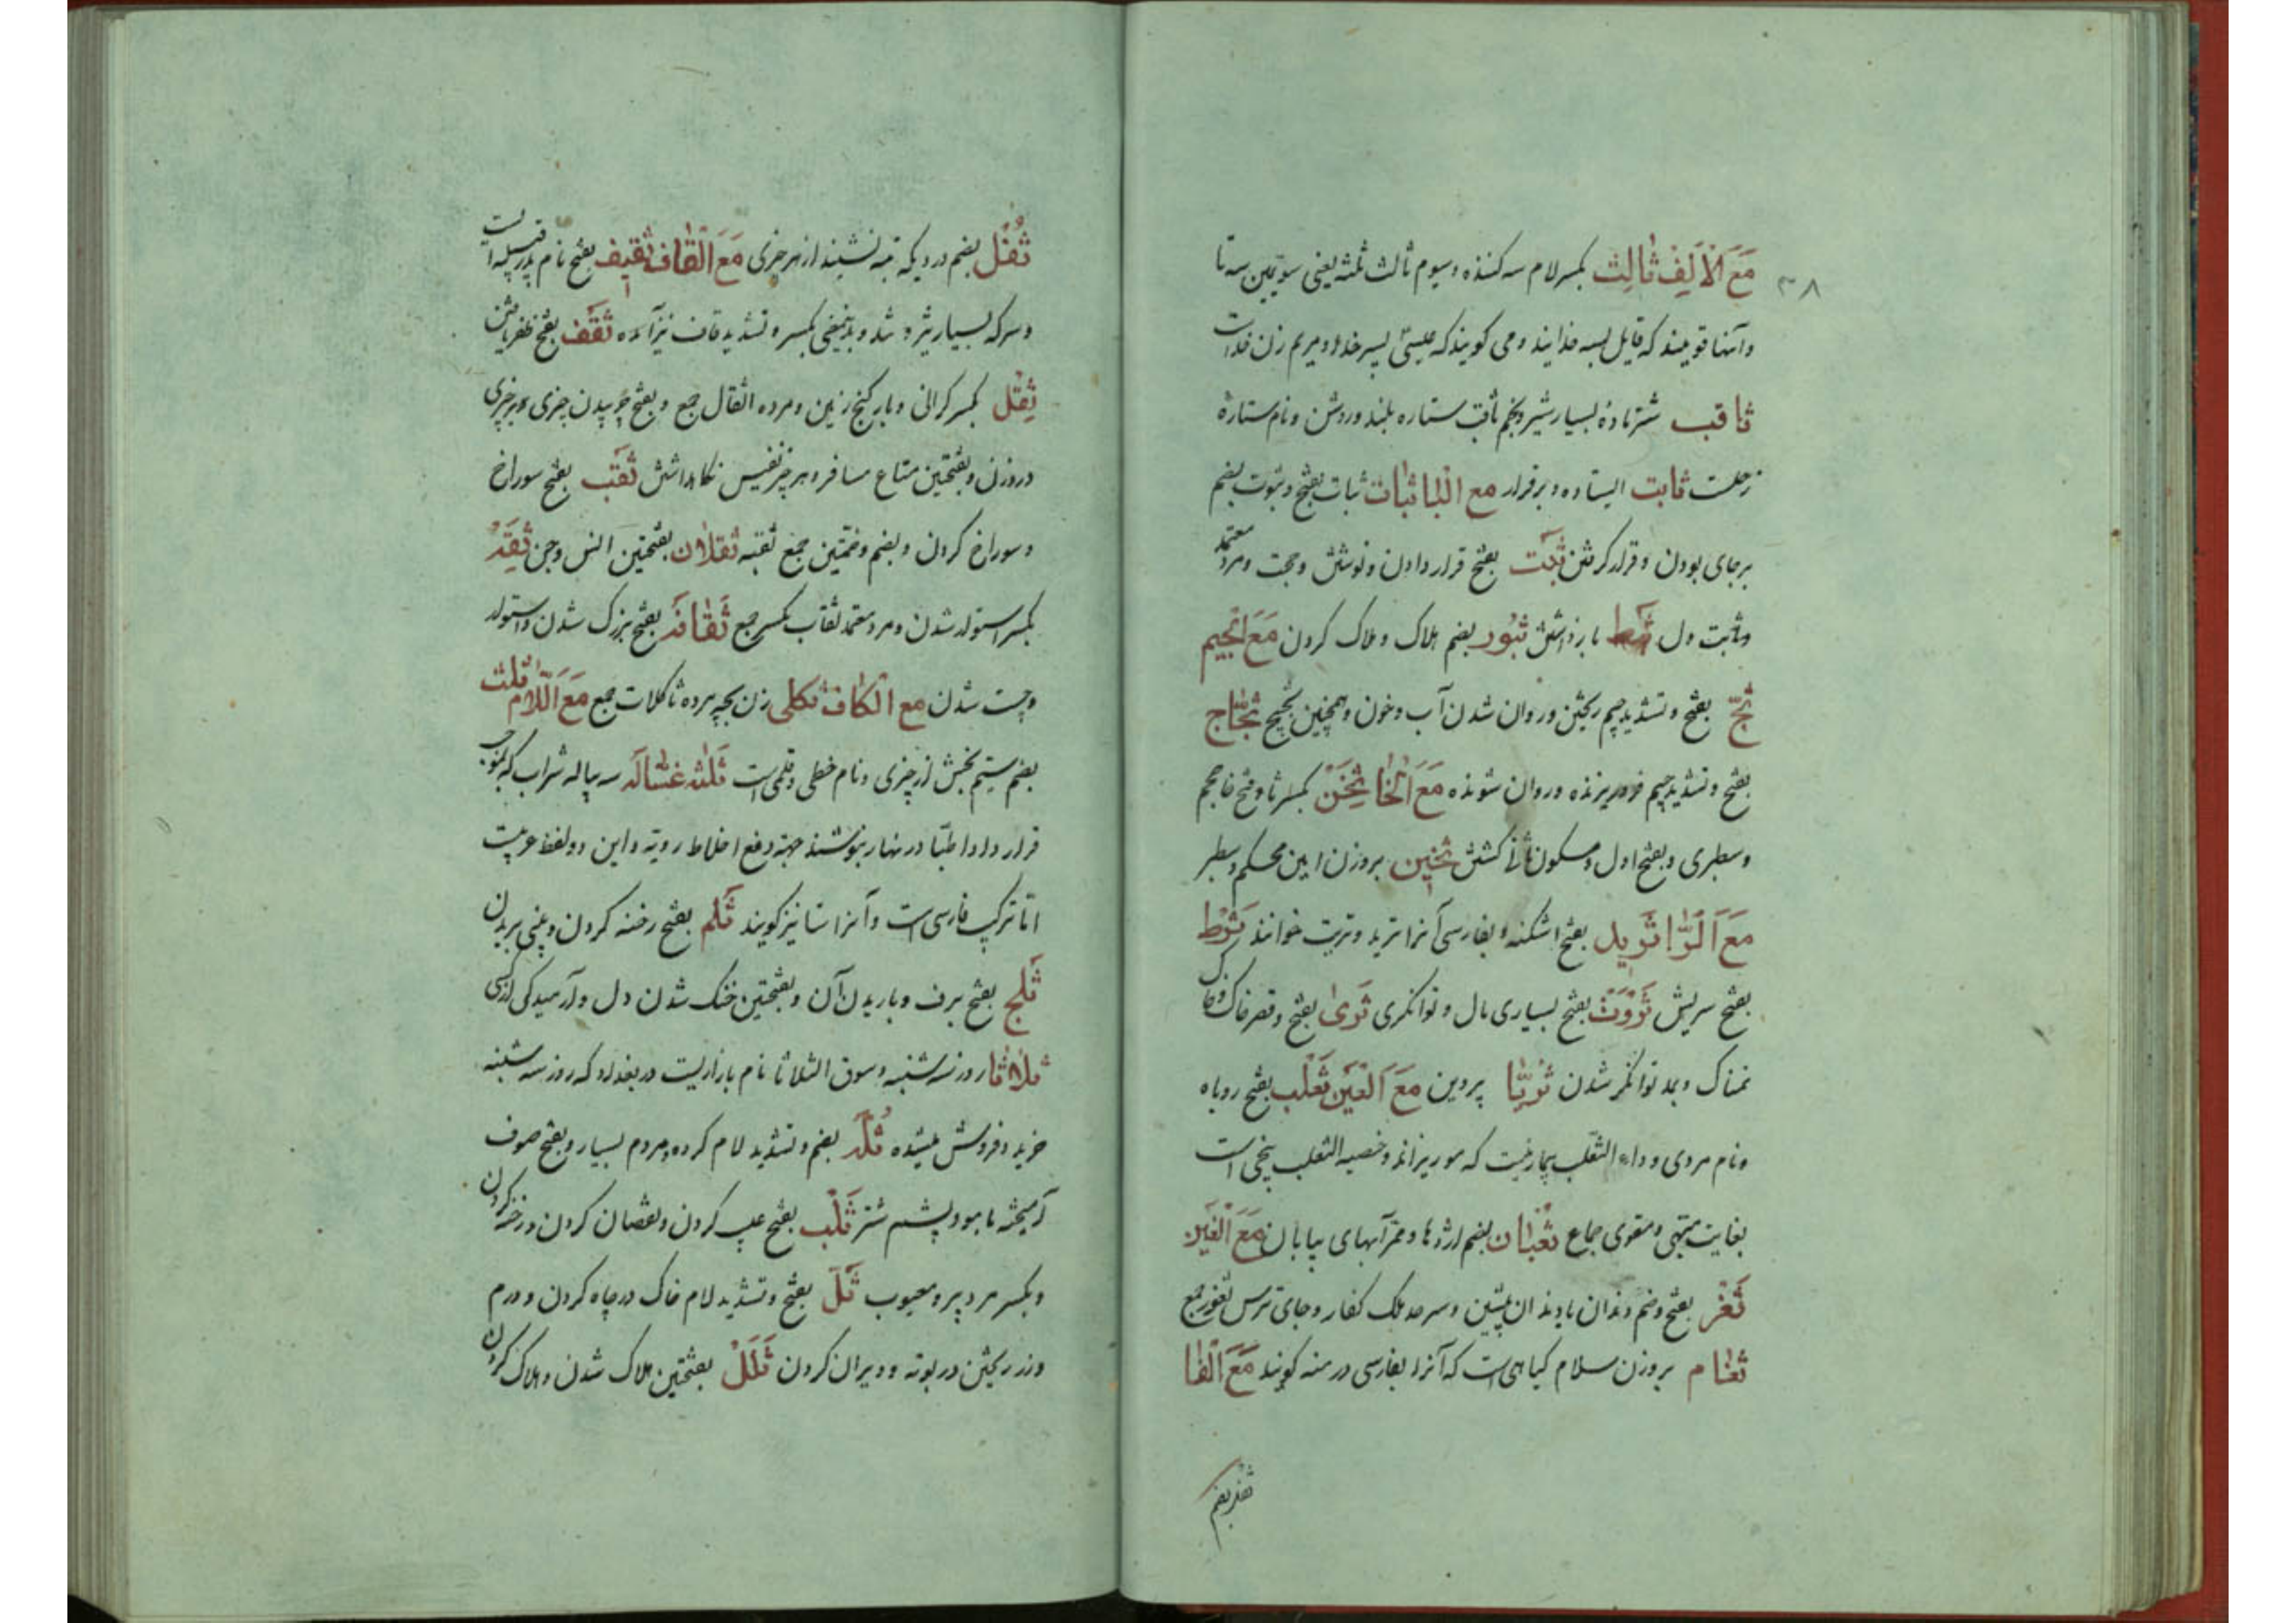 ۳۸
مَعَ الْاَلِف ثالِث بکسر لام سه کننده و سیوم ثالث ثلثه یعنی سویمین سه تا
و آنها قومیند که قایل بسه خدایند و می کویند که عیسی پسر خدا و مریم زن خداست
ثاقب شتر ماده بسیار شیر و نجم ثاقب ستاره بلند و روشن و نام ستارهٔ
زحلست ثابت ایستاده و برقرار مع البا ثبات ثبات بفتح و ثبوت بضم
برجای بودن و قرار کرفتن ثَبْت بفتح قرار دادن و نوشتن و حجت و مرد معتمد
و ثابت دل ثبط بازداشتن ثبُور بضم هلاک و هلاک کردن مَعَ الجیم
ثَجّ بفتح و تشدید جیم ریختن و روان شدن آب و خون و همچنین ثجیج ثَجّاج
بفتح و تشدید جیم فرو ریزنده و روان شونده مَعَ الْخَا ثِخَن بکسر ثا و فتح خا حجم
و سطبری و بفتح اول و سکون ثانی کشتن ثخین بروزن امین محکم و سطبر
مَعَ الرّا ثَرید بفتح اشکنه و بفارسی آنرا ترید و تریت خوانند ثرط
بفتح سریش ثَروَت بفتح بسیاری مال و توانکری ثَری بفتح و قصر خاک و خاک
نمناک و بمد توانکر شدن ثُریّا پروین مَعَ العَین ثَعلَب بفتح روباه
و نام مردی و داء الثعلب بیماریست که مو ریزاند و خصیه الثعلب بیخی است
بغایت مبهی و مقوی جماع ثُعبان بضم اژدها و ممر آبهای بیابان مَعَ الْغَین
ثَغْر بفتح و ضم دندان یا دندان پیشین و سرحد ملک کفار و جای ترس ثغور جمع
ثغام بروزن سلام کیاهی است که آنرا بفارسی درمنه کویند مَعَ الْفا
ثفل بضم
ثُفْل بضم درد و یکه ته نشیند از هر چیزی مَعَ الْقاف ثَقیف بفتح نام پدر قبیله است
و سرکه بسیار ترش و تند و بدینمعنی بکسر و تشدید قاف نیز آمده ثَقَف بفتح ظفر یافتن
ثِقْل بکسر کرانی و بار و کنج زمین و مرده اثقال جمع و بفتح چوپیدن چیزی بر چیزی
در وزن و بفتحتین متاع مسافر و هر چیز نفیس نکاهداشتن ثَقْب بفتح سوراخ
و سوراخ کردن و بضم و ضمتین جمع ثقبه ثقلان بفتحتین انس و جن ثِقَه
بکسر استوار شدن و مرد معتمد ثقات بکسر جمع ثَقافَه بفتح بزرک شدن و استوار
و چست شدن مع الکاف ثکلی زن بچه مرده ثاکلات جمع مَعَ اللّام ثُلث
بضم سیم بخش از چیزی و نام خطی و قلمی است ثَلٰثه غسّاله سه پیاله شراب که بموجب
قرار داد اطبّا در نهار بنوشند جهة دفع اخلاط رویه و این دو لفظ عربیست
امّا ترکیب فارسی است و آنرا ستا نیز کویند ثَلم بفتح رخنه کردن و بینی بریدن
ثَلج بفتح برف و باریدن آن و بفتحتین خنک شدن دل و آرمیدکی از کسی
ثلاثا روز سه شنبه و سوق الثلاثا نام بازاریست در بغداد که روز سه شنبه
خرید و فروش میشده ثُلّه بضم و تشدید لام کروه و مردم بسیار و بفتح صوف
آمیخته با مو و پشم شتر ثَلْب بفتح عیب کردن و نقصان کردن و رخنه کردن
و بکسر مرد پیر و معیوب ثَلّ بفتح و تشدید لام خاک در چاه کردن و درم
و زر ریختن در بوته و ویران کردن ثَلَل بفتحتین هلاک شدن و هلاک کردن